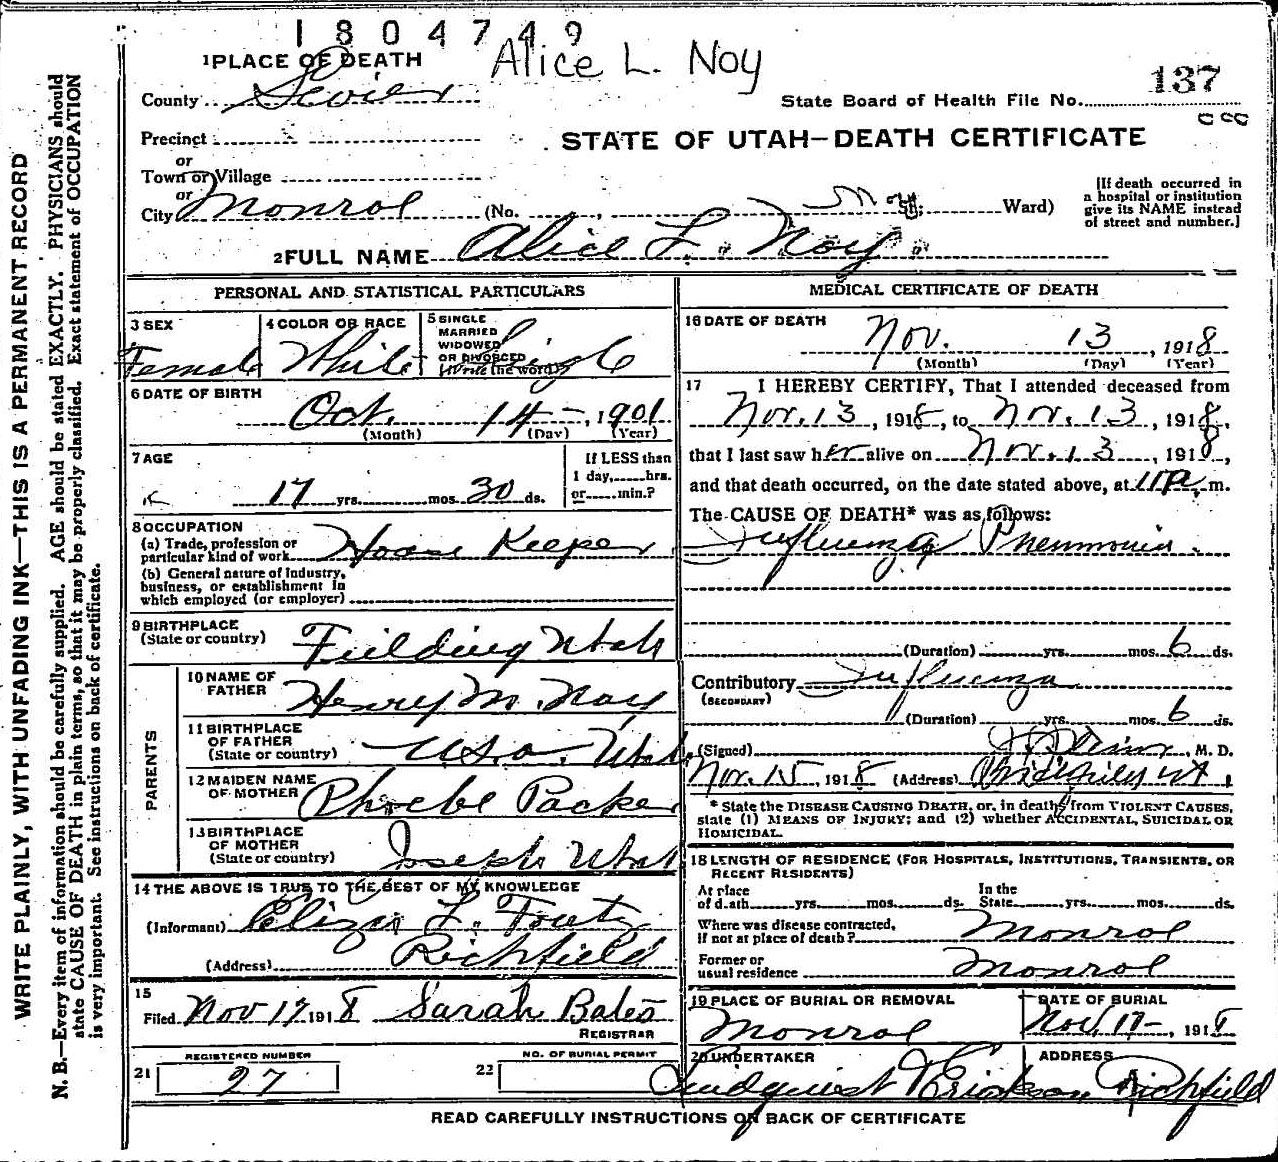 1804749
Alice L. Noy
1 PLACE OF DEATH
County Sevier
State Board of Health File No. 137
Precinct
STATE OF UTAH—DEATH CERTIFICATE
or
Town or Village
or
City Monroe (No. , ; Ward)
[If death occurred in a hospital or institution give its NAME instead of street and number.]
2 FULL NAME Alice L. Noy
PERSONAL AND STATISTICAL PARTICULARS
3 SEX Female
4 COLOR OR RACE White
5 SINGLE MARRIED WIDOWED OR DIVORCED (Write the word) Single
6 DATE OF BIRTH
Oct. 14 - , 1901
(Month) (Day) (Year)
7 AGE
17 yrs. mos. 30 ds.
If LESS than 1 day, hrs. or min.?
8 OCCUPATION
(a) Trade, profession or particular kind of work House Keeper
(b) General nature of industry, business, or establishment in which employed (or employer)
9 BIRTHPLACE
(State or country) Fielding Utah
PARENTS
10 NAME OF FATHER Henry M. Noy
11 BIRTHPLACE OF FATHER
(State or country) U.S.A. Utah
12 MAIDEN NAME OF MOTHER Phoebe Packer
13 BIRTHPLACE OF MOTHER
(State or country) Joseph Utah
14 THE ABOVE IS TRUE TO THE BEST OF MY KNOWLEDGE
(Informant) Eliza L.
(Address) Richfield
15
Filed Nov 17 1918 Sarah Bates
REGISTRAR
REGISTERED NUMBER
21 27
NO. OF BURIAL PERMIT
22
MEDICAL CERTIFICATE OF DEATH
16 DATE OF DEATH
Nov. 13 , 1918
(Month) (Day) (Year)
17 I HEREBY CERTIFY, That I attended deceased from
Nov. 13, 1918, to Nov. 13, 1918,
that I last saw her alive on Nov. 13, 1918,
and that death occurred, on the date stated above, at 11 P. m.
The CAUSE OF DEATH* was as follows:
Influenza Pneumonia.
(Duration) yrs. mos. 6 ds.
Contributory Influenza
(SECONDARY)
(Duration) yrs. mos. 6 ds.
(Signed) , M. D.
Nov. 15, 1918 (Address) Richfield Ut
* State the DISEASE CAUSING DEATH, or, in deaths from VIOLENT CAUSES, state (1) MEANS OF INJURY; and (2) whether ACCIDENTAL, SUICIDAL OR HOMICIDAL.
18 LENGTH OF RESIDENCE (FOR HOSPITALS, INSTITUTIONS, TRANSIENTS, OR RECENT RESIDENTS)
At place of death yrs. mos. ds. In the State yrs. mos. ds.
Where was disease contracted, if not at place of death? Monroe
Former or usual residence Monroe
19 PLACE OF BURIAL OR REMOVAL
Monroe
DATE OF BURIAL
Nov. 17 - , 1918
20 UNDERTAKER
Lindquist & Erickson
ADDRESS
Richfield
READ CAREFULLY INSTRUCTIONS ON BACK OF CERTIFICATE
WRITE PLAINLY, WITH UNFADING INK—THIS IS A PERMANENT RECORD
N. B.—Every item of information should be carefully supplied. AGE should be stated EXACTLY. PHYSICIANS should
state CAUSE OF DEATH in plain terms, so that it may be properly classified. Exact statement of OCCUPATION
is very important. See instructions on back of certificate.